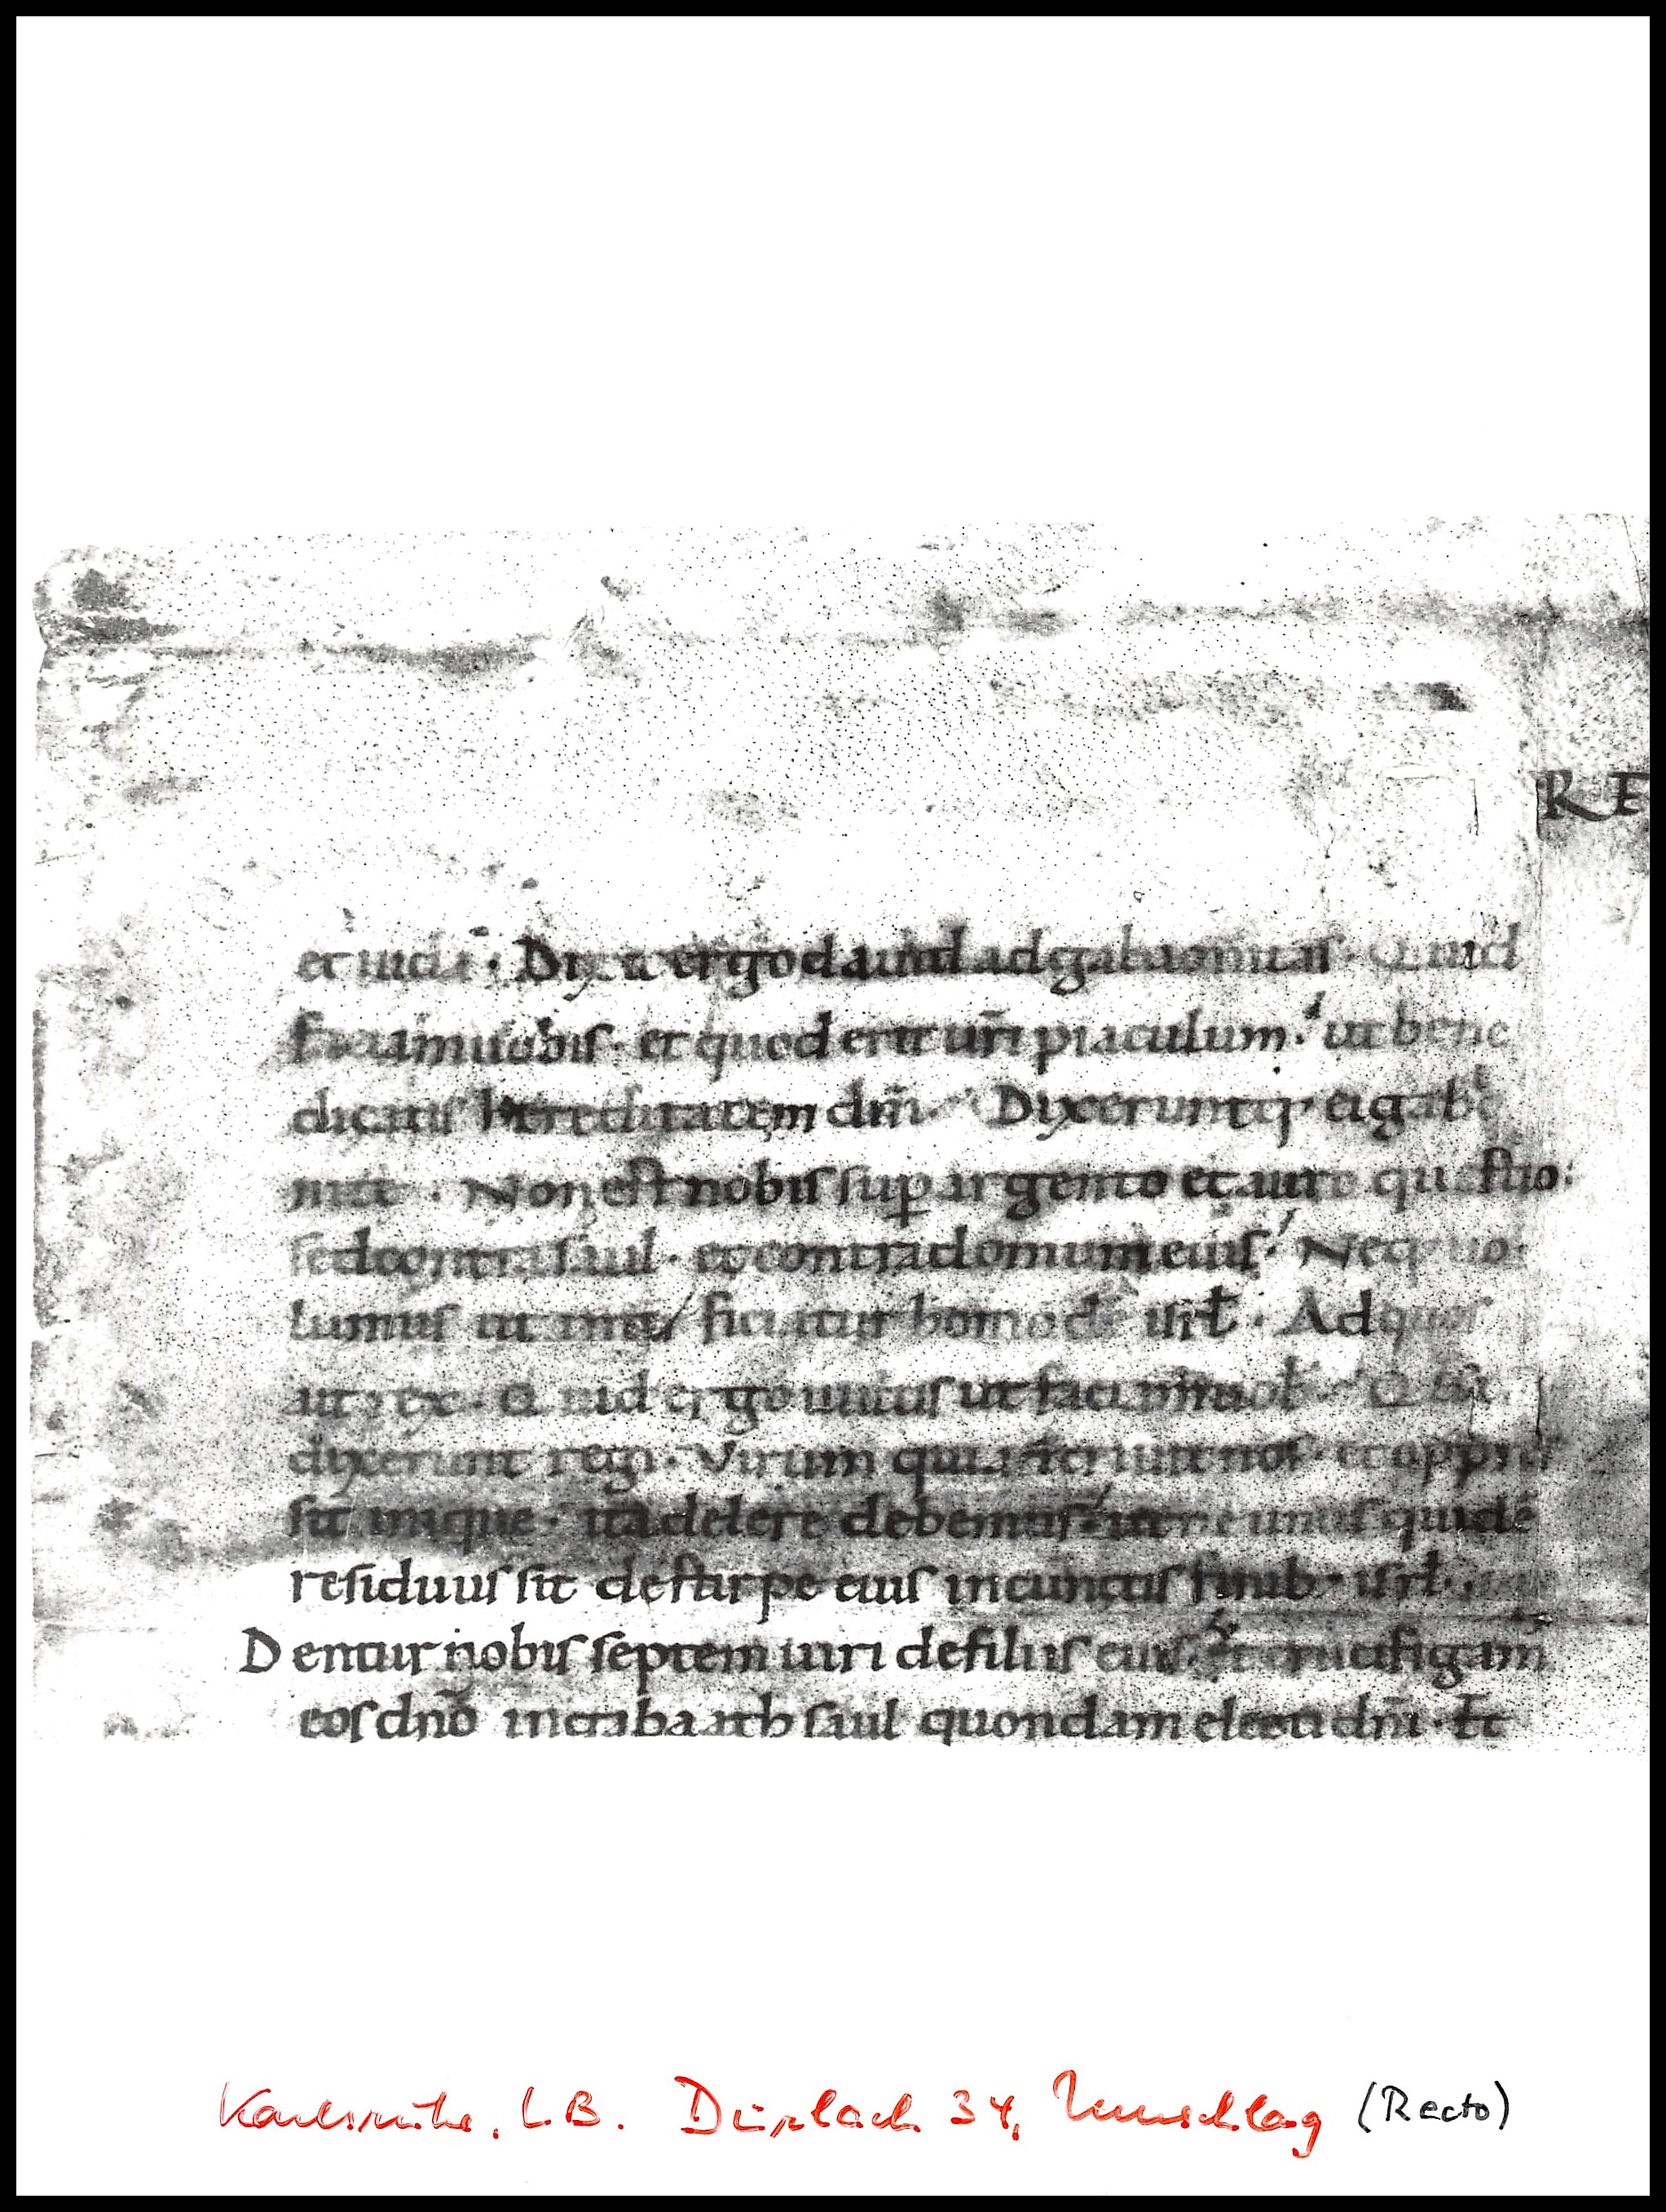 RE
et iuda · Dixit ergo dauid ad gabaonitas · Quid
faciam uobis · et quod erit ur̄i piaculum · ut bene
dicatis hereditatem dn̄i Dixeruntq; ei gabao
nitę · Non est nobis sup̱ argento et auro quęstio ·
sed contra saul · et contra domum eius · Neq; uo
lumus ut interficiatur homo de isrl̄ · Ad quos
ait rex · Quid ergo uultis ut faciam uob̄ Qui
dixerunt regi · Virum qui attriuit nos et oppres
sit inique · ita delere debemus ut ne unus quidē
residuus sit de stirpe eius in cunctis finib · isrl̄ ·
Dentur nobis septem uiri de filiis eius · Et crucifigam̄
eos dn̄o in gabaath saul quondam electi dn̄i · Et
Karlsruhe, L.B. Durlach 34, Umschlag (Recto)